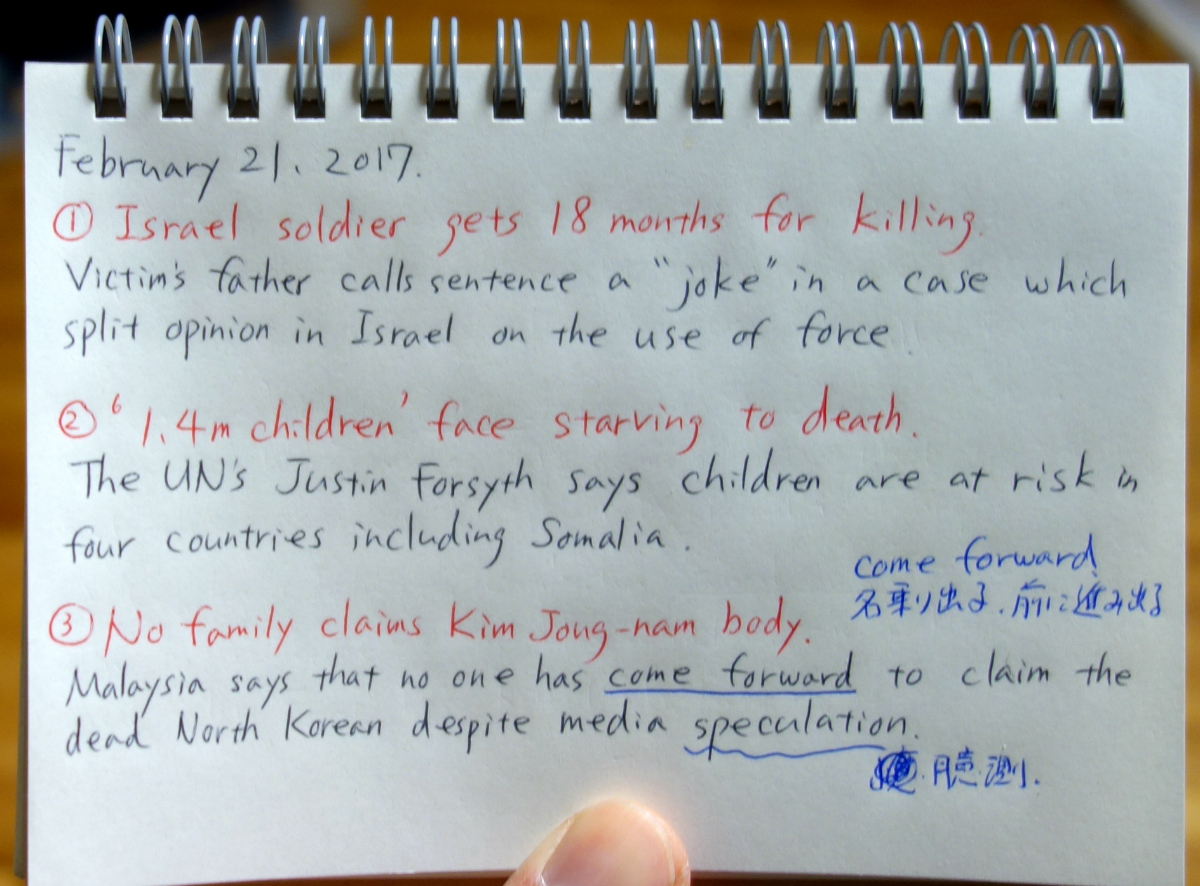 February 21. 2017.
① Israel soldier gets 18 months for killing.
Victim's father calls sentence a "joke" in a case which
split opinion in Israel on the use of force.
② '1.4m children' face starving to death.
The UN's Justin Forsyth says children are at risk in
four countries including Somalia.
come forward
名乗り出る、前に進み出る
③ No family claims Kim Jong-nam body.
Malaysia says that no one has come forward to claim the
dead North Korean despite media speculation.
臆測.